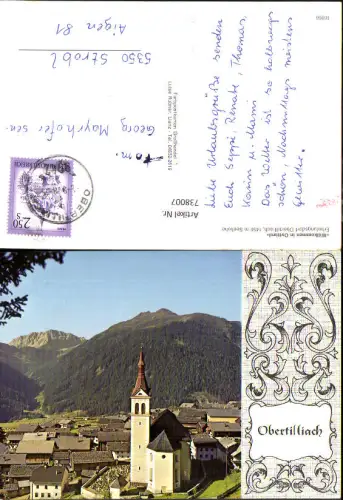 Liebe Urlaubsgrüße senden
Euch Seppi, Renate, Thomas,
Karin u. Mami
Das Wetter ist so halbwegs
schön, Nachmittags meistens
Gewitter.
Fam.
Georg Mayrhofer sen.
5350 Strobl
Aigen 81
2.50
S
REPUBLIK ÖSTERREICH
Artikel Nr. 738007
»Willkommen in Osttirol«
Erholungsdorf Obertilliach, 1450 m Seehöhe
Obertilliach